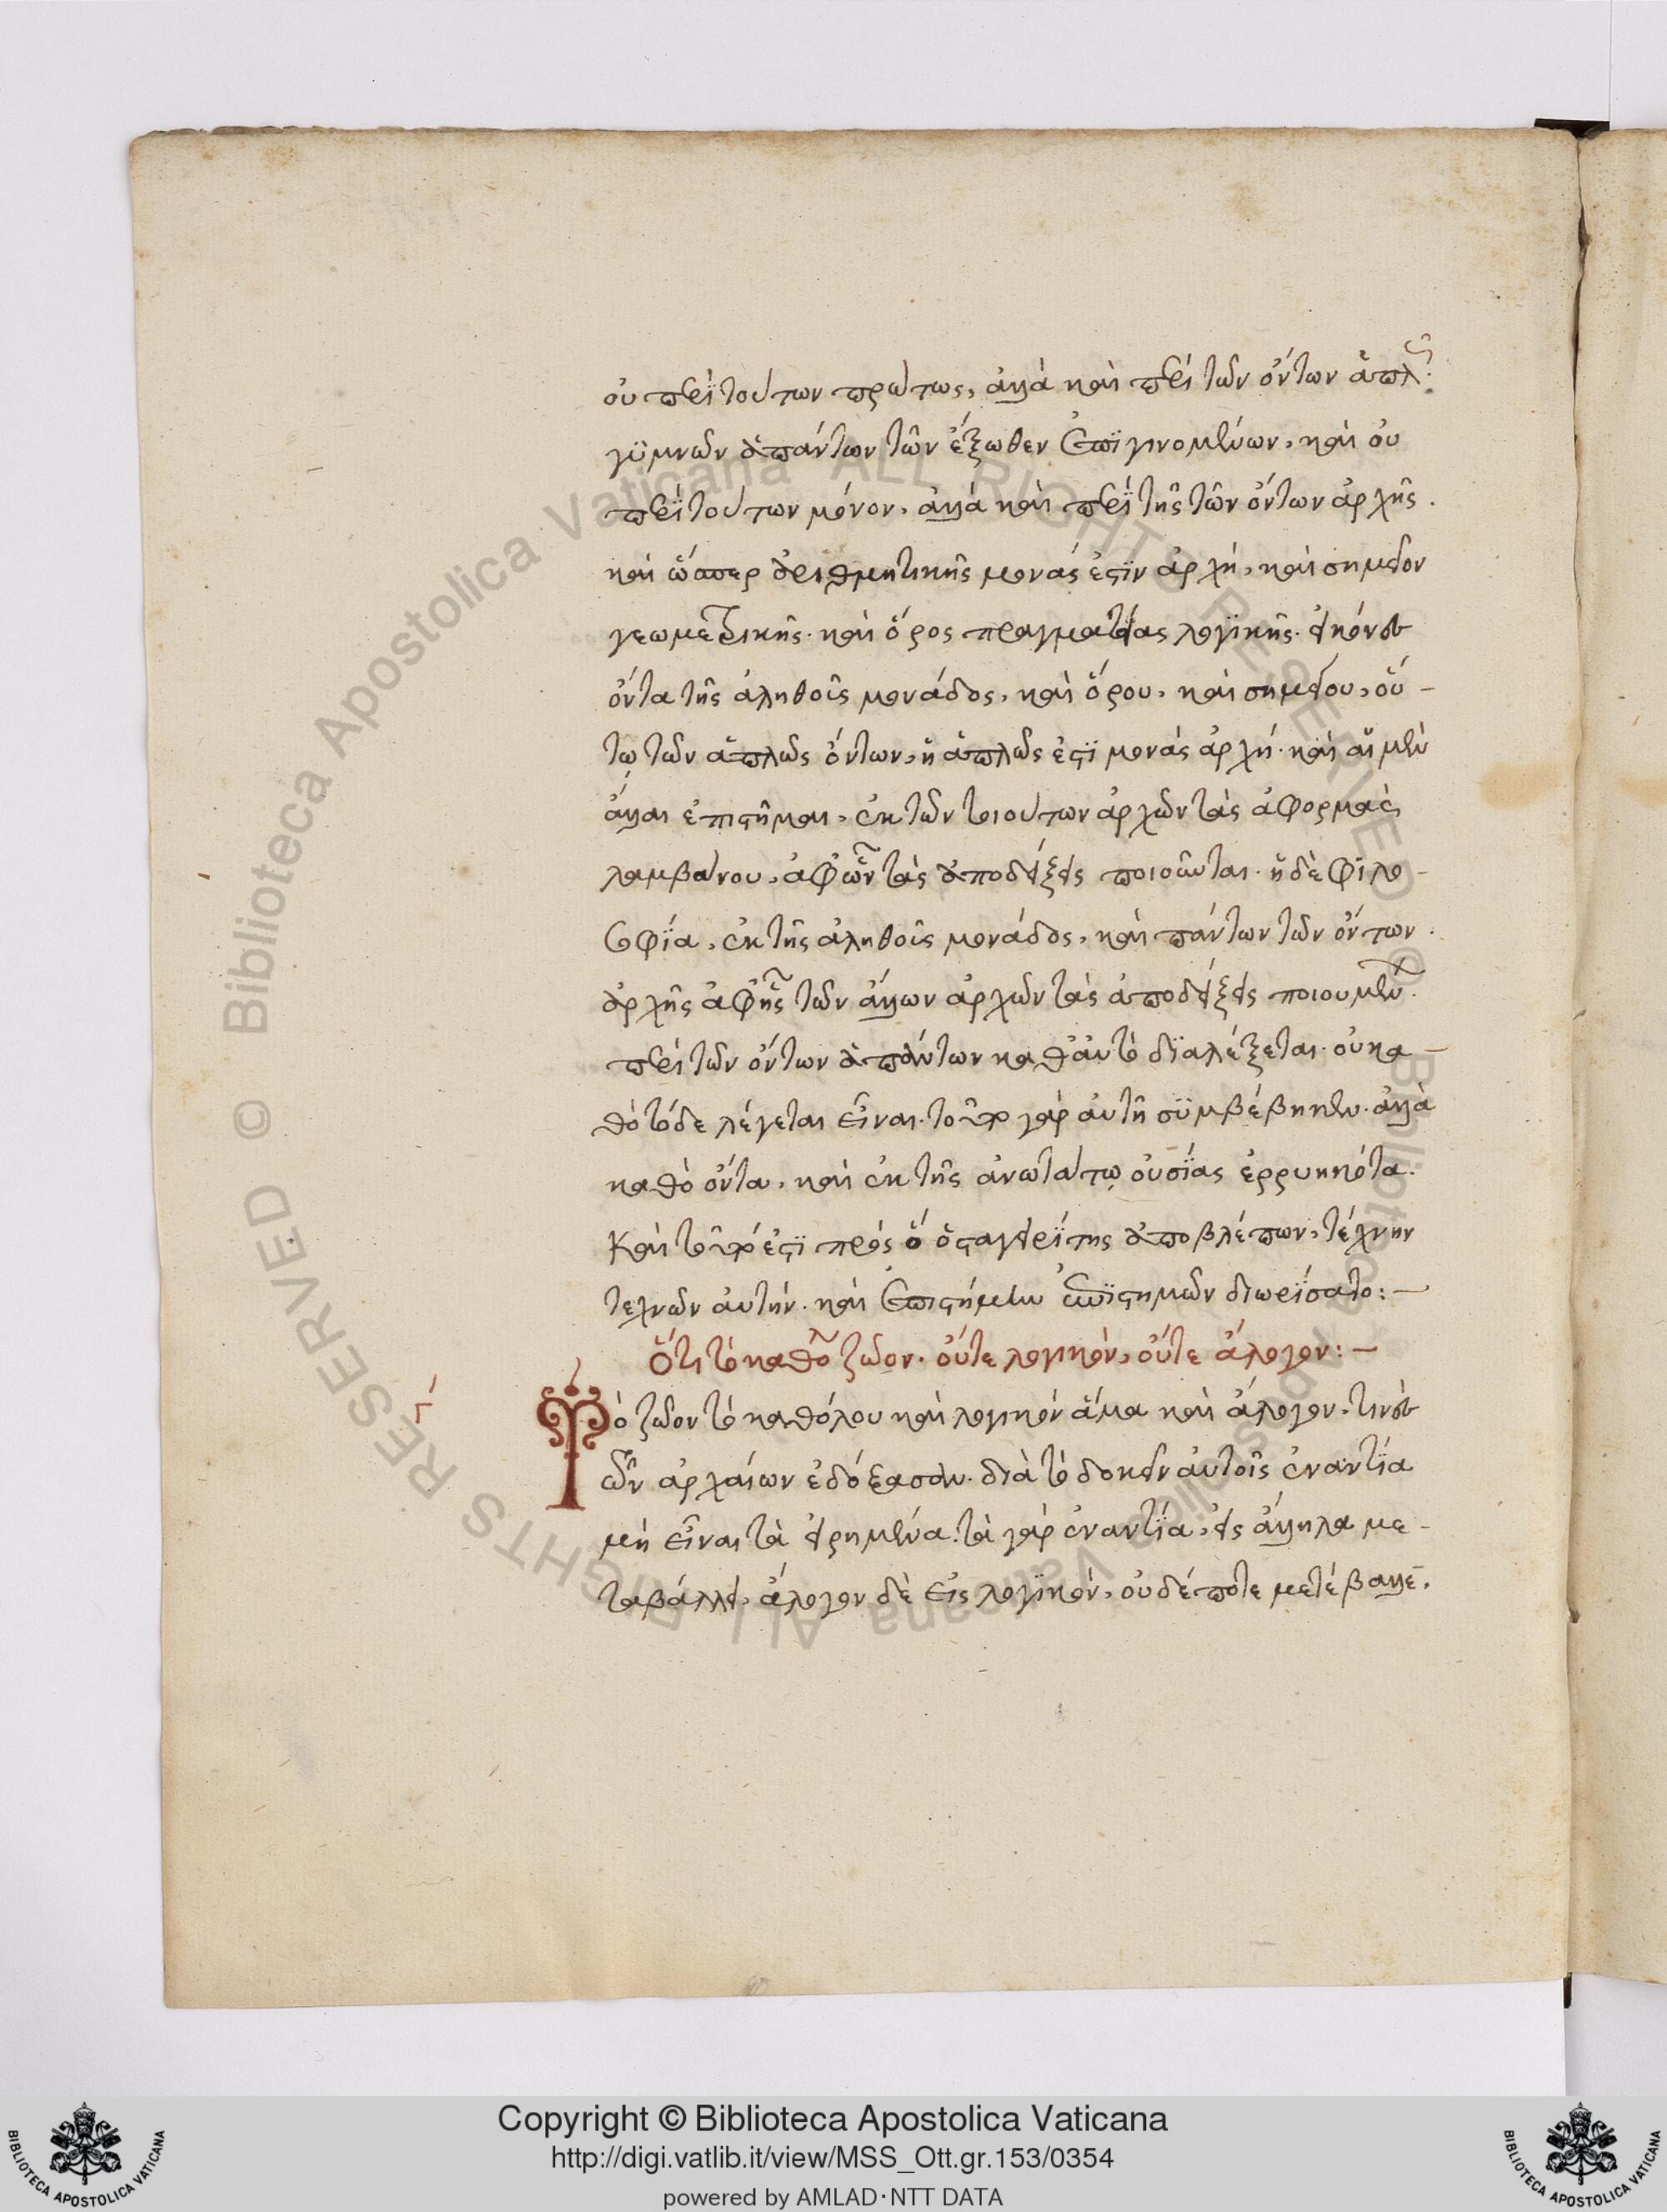 οὐ περὶ τούτων πρώτως, ἀλλὰ καὶ περὶ τῶν ὄντων ἁπλῶς
γυμνῶν ἁπάντων τῶν ἔξωθεν ἐπιγινομένων, καὶ οὐ
περὶ τούτων μόνον, ἀλλὰ καὶ περὶ τῆς τῶν ὄντων ἀρχῆς.
καὶ ὥσπερ ἀριθμητικῆς μονάς ἐστιν ἀρχή, καὶ σημεῖον
γεωμετρικῆς. καὶ ὅρος πραγματείας λογικῆς. εἰκόνες
ὄντα τῆς ἀληθοῦς μονάδος, καὶ ὅρου, καὶ σημείου, οὕ-
τω τῶν ἁπλῶς ὄντων, ἡ ἁπλῶς ἐστὶ μονὰς ἀρχή. καὶ αἱ μὲν
ἄλλαι ἐπιστῆμαι, ἐκ τῶν τοιούτων ἀρχῶν τὰς ἀφορμὰς
λαμβάνου, ἀφ' ὧν τὰς ἀποδείξεις ποιοῦνται. ἡ δὲ φιλο-
σοφία, ἐκ τῆς ἀληθοῦς μονάδος, καὶ πάντων τῶν ὄντων
ἀρχῆς ἀφ' ἧς τῶν ἄλλων ἀρχῶν τὰς ἀποδείξεις ποιουμένη.
περὶ τῶν ὄντων ἁπάντων καθ' αὑτὸ διαλέξεται. οὐ κα-
θὸ τόδε λέγεται εἶναι. τοῦτο γὰρ αὐτῇ συμβέβηκεν. ἀλλὰ
καθὸ ὄντα, καὶ ἐκ τῆς ἀνωτάτω οὐσίας ἐρρυηκότα.
Καὶ τοῦτό ἐστι πρὸς ὃ ὁ σταγειρίτης ἀποβλέπων, τέχνην
τεχνῶν αὐτήν. καὶ ἐπιστήμην ἐπιστημῶν διωρίσατο:—
Ὅτι τὸ καθό ζῶον. οὔτε λογικόν, οὔτε ἄλογον:—
Τὸ ζῶον τὸ καθόλου καὶ λογικόν ἅμα καὶ ἄλογον, τινὲς
τῶν ἀρχαίων ἐδόξασαν. διὰ τὸ δοκεῖν αὐτοῖς ἐναντία
μὴ εἶναι τὰ εἰρημένα. τὰ γὰρ ἐναντία, εἰς ἄλληλα με-
ταβάλλει, ἄλογον δὲ εἰς λογικόν, οὐδέποτε μετέβαλλε.
© Biblioteca Apostolica Vaticana ALL RIGHTS RESERVED © Biblioteca Apostolica Vaticana ALL RIGHTS RESERVED
Copyright © Biblioteca Apostolica Vaticana
http://digi.vatlib.it/view/MSS_Ott.gr.153/0354
powered by AMLAD·NTT DATA
BIBLIOTECA APOSTOLICA VATICANA
BIBLIOTECA APOSTOLICA VATICANA